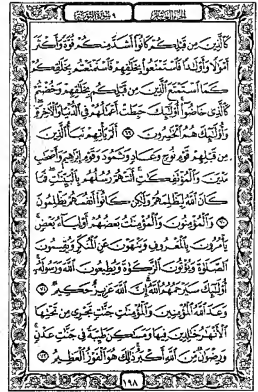 الجزء العاشر ٩ سورة التوبة
كالذين من قبلكم كانوا أشد منكم قوة وأكثر
أموالا وأولادا فاستمتعوا بخلاقهم فاستمتعتم بخلاقكم
كما استمتع الذين من قبلكم بخلاقهم وخضتم
كالذي خاضوا أولئك حبطت أعمالهم في الدنيا والآخرة
وأولئك هم الخاسرون ٦٩ ألم يأتهم نبأ الذين
من قبلهم قوم نوح وعاد وثمود وقوم إبراهيم وأصحاب
مدين والمؤتفكات أتتهم رسلهم بالبينات فما
كان الله ليظلمهم ولكن كانوا أنفسهم يظلمون
٧٠ والمؤمنون والمؤمنات بعضهم أولياء بعض
يأمرون بالمعروف وينهون عن المنكر ويقيمون
الصلوة ويؤتون الزكوة ويطيعون الله ورسوله
أولئك سيرحمهم الله إن الله عزيز حكيم ٧١
وعد الله المؤمنين والمؤمنات جنات تجري من تحتها
الأنهار خالدين فيها ومساكن طيبة في جنات عدن
ورضوان من الله أكبر ذلك هو الفوز العظيم ٧٢
١٩٨